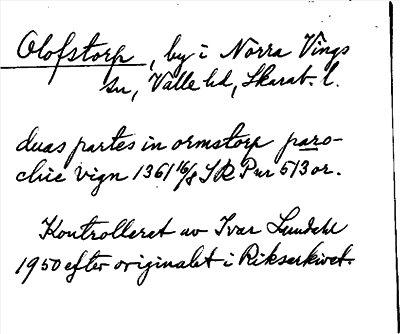 Olofstorp, by i Norra Vings
sn, Valle hd, Skarab. l.
duas partes in ormstorp paro-
chie vign 1361 16/8 SRP nr 513 or.
Kontrollerat av Ivar Lundahl
1950 efter originalet i Riksarkivet.